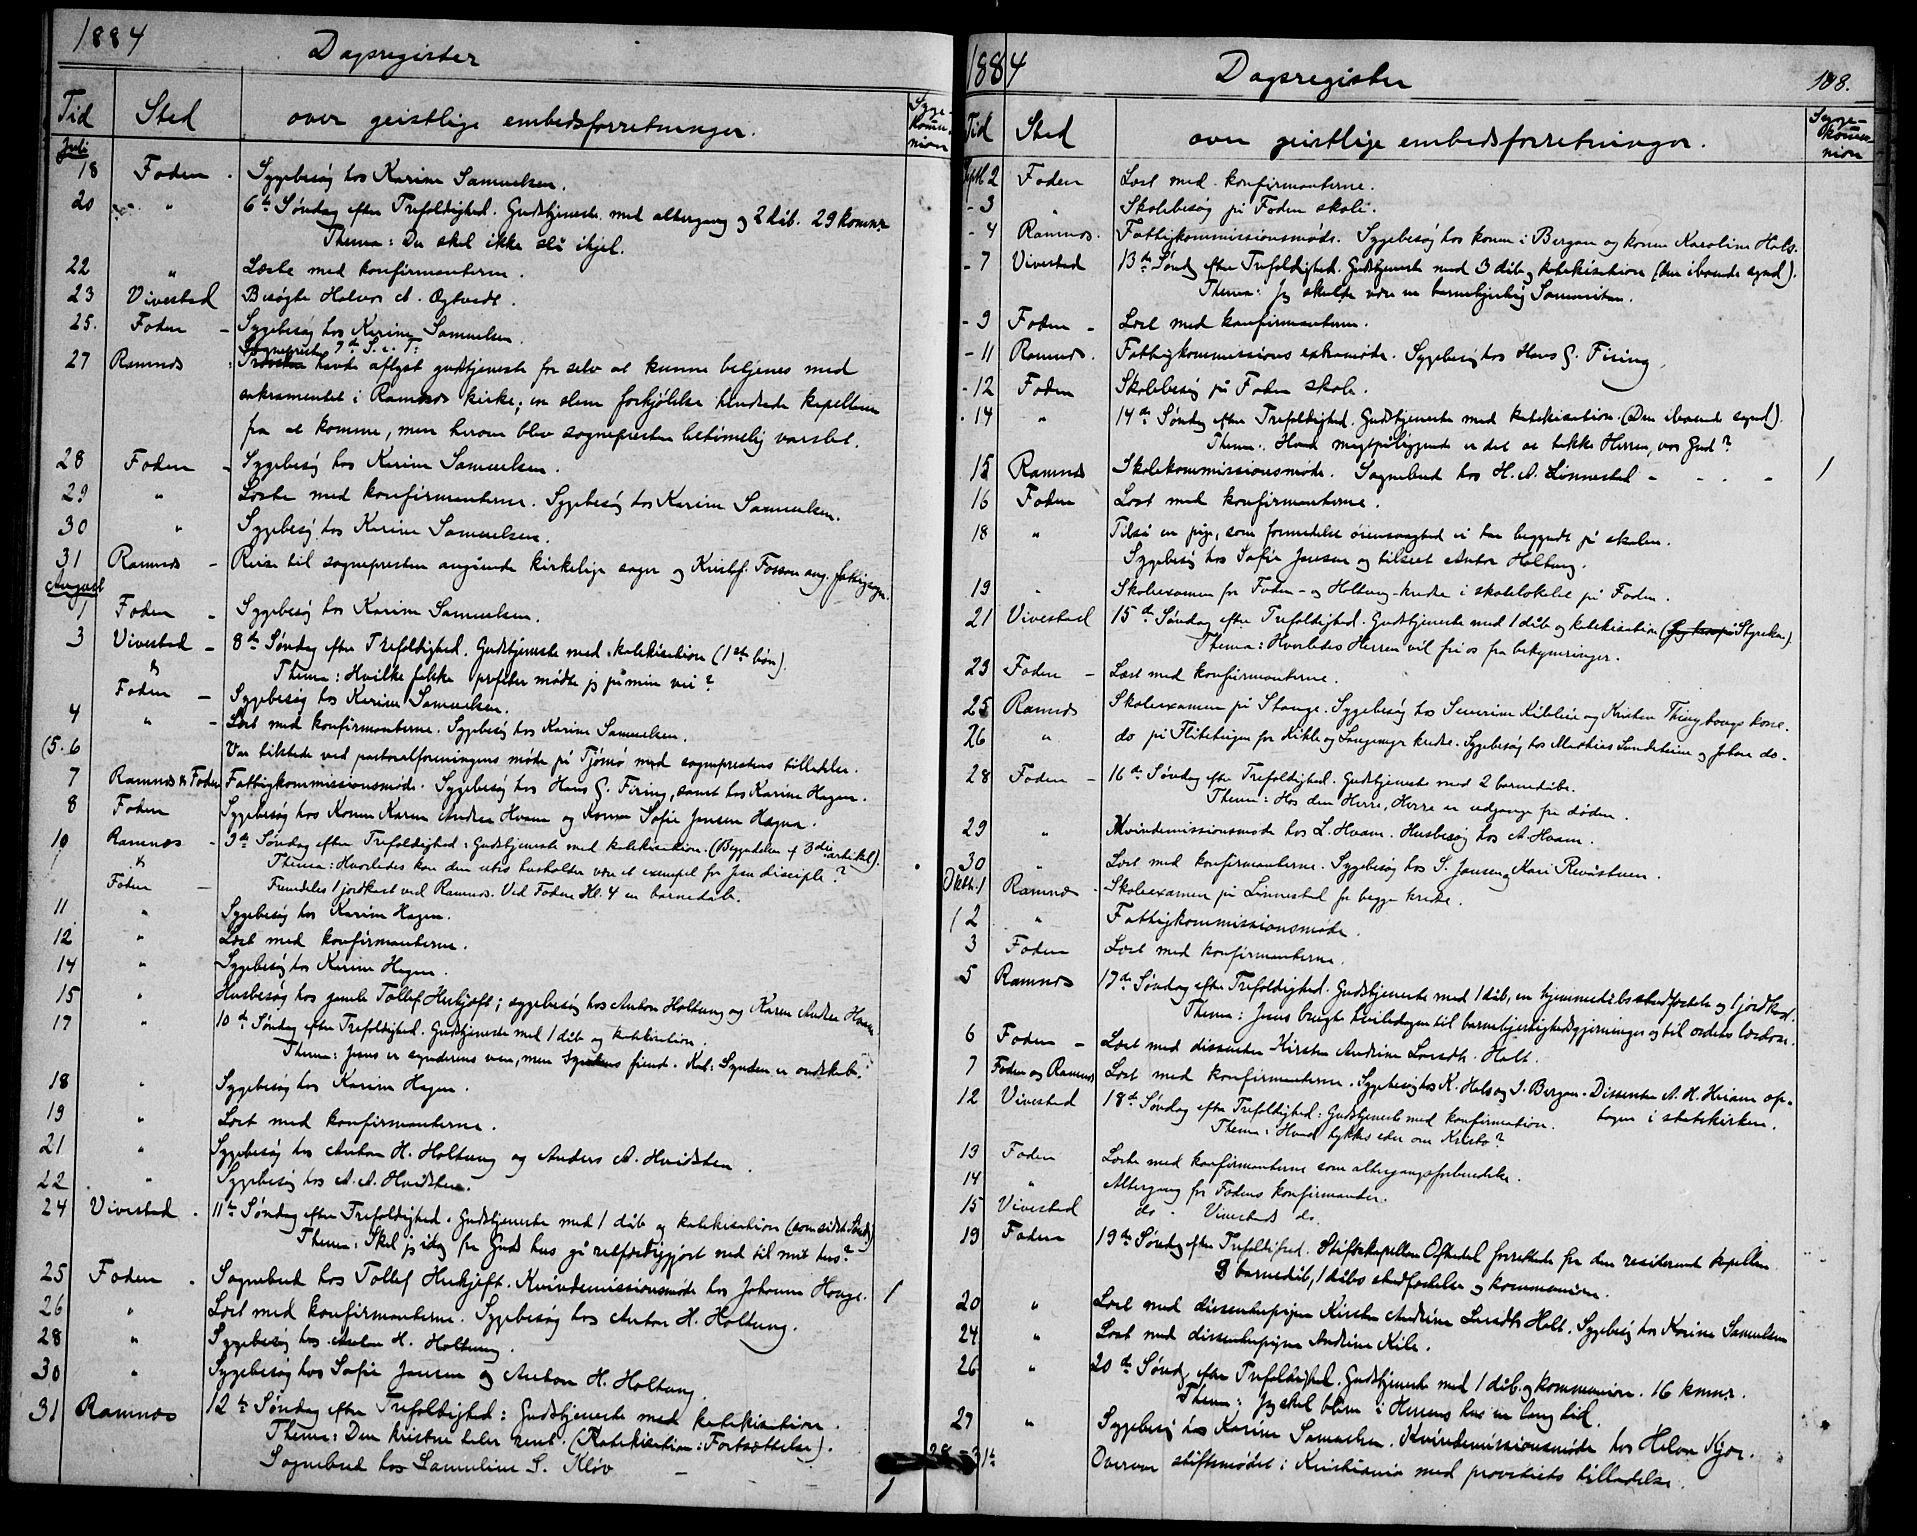 1884
Dagsregister
Tid Sted over geistlige embedsforretninger. Sygekommunion
Juli
18 Foden . Sygebesøg hos Karine Samuelsen.
20 " 6te Søndag efter Trefoldighed. Gudstjeneste med altergang og 2 dåb. 29 komm:
Thema: Du skal ikke slå ihjel.
22 " Læste med konfirmanterne.
23 Vivestad Besøgte Halvor A. Ogtvedt.
25. Foden - Sygebesøg hos Karine Samuelsen.
Sognepresten 7de S. e. T:
27 Ramnæs havde aflyst gudstjeneste for selv at kunne betjenes med
sakramentet i Ramnæs kirke; en slem forkjølelse hindrede kapellanen
fra at komme, men herom blev sognepresten betimelig varslet.
28 Foden - Sygebesøg hos Karine Samuelsen.
29 " Læste med konfirmanterne. Sygebesøg hos Karine Samuelsen.
30 " Sygebesøg hos Karine Samuelsen.
31 Ramnæs - Reise til sognepresten angående kirkelige sager og Kristf. Fossan ang. fattigsager.
August
1 Foden - Sygebesøg hos Karine Samuelsen.
3 Vivestad - 8de Søndag efter Trefoldighed. Gudstjeneste med katekisation (1ste bøn).
& Thema: Hvilke falske profeter mødte jeg på min vei?
Foden - Sygebesøg hos Karine Samuelsen.
4 " - Læst med konfirmanterne. Sygebesøg hos Karine Samuelsen.
(5. 6 Var tilstede ved pastoralforeningens møde på Tjømø med sogneprestens tilladelse.
7 Ramnæs & Foden Fattigkommissionsmøde. Sygebesøg hos Hans G. Firing, samt hos Karine Hagen.
8 Foden Sygebesøg hos Konen Karen Andrea Hvam og Konen Sofie Jensen Hagen.
10 Ramnæs - 9de Søndag efter Trefoldighed: Gudstjeneste med katekisation. (Begyndelsen af 3die artikel).
& Thema: Hvorledes kan den utro husholder være et exempel for Jesu disciple?
Foden - Fremdeles 1 jordkast ved Ramnæs. Ved Foden Kl. 4 en barnedåb.
11 " Sygebesøg hos Karine Hagen.
12 " Læst med konfirmanterne.
14 " Sygebesøg hos Karine Hagen.
15 " Husbesøg hos gamle Tollef Herkjøft; sygebesøg hos Anton Holtung og Karen Andrea Hvam
17 " 10de Søndag efter Trefoldighed. Gudstjeneste med 1 dåb og katekisation.
Thema: Jesus er synderens ven, men syndens fiende. Kat: Synden er ondskab.
18 " Sygebesøg hos Karine Hagen.
19 " Læst med konfirmanterne.
21 " Sygebesøg hos Anton H. Holtung og Anders A. Hvidsten.
22 " Sygebesøg hos A. A. Hvidsten.
24 Vivestad . 11te Søndag efter Trefoldighed. Gudstjeneste med 1 dåb og katekisation (som sidste Sønd.)
Thema: Skal jeg idag fra Guds hus gå retfærdiggjort ned til mit hus?
25 Foden . Sognebud hos Tollef Herkjøft. Kvindemissionsmøde hos Johanne Hauge. 1
26 " Læst med konfirmanterne. Sygebesøg hos Anton H. Holtung.
28 " Sygebesøg hos Anton H. Holtung.
30 " Sygebesøg hos Sofie Jensen og Anton H. Holtung.
31 Ramnæs 12te Søndag efter Trefoldighed: Gudstjeneste med katekisation.
Thema: Den kristne taler sent. (Katekisation: Fortsættelse).
Sognebud hos Samueline S. Kløv - 1
1884
Dagsregister
188.
Tid Sted over geistlige embedsforretninger. Sygekommunion
Septb 2 Foden Læst med konfirmanterne.
- 3 " Skolebesøg på Foden skole.
- 4 Ramnæs. Fattigkommissionsmøde. Sygebesøg hos konen i Bergan og konen Karoline Hals.
- 7 Vivestad 13de Sønd. efter Trefoldighed. Gudstjeneste med 3 dåb og katekisation (den iboende synd).
Thema: Jeg skulde være en barmhjertig Samaritan.
- 9 Foden - Læst med konfirmanterne.
- 11 Ramnæs. Fattigkommissions extramøde. Sygebesøg hos Hans G. Firing.
- 12 Foden Skolebesøg på Foden skole.
- 14 " 14de Søndag efter Trefoldighed. Gudstjeneste med katekisation. (Den iboende synd).
Thema: Hvad magtpåliggende er det at takke Herren, vor Gud?
15 Ramnæs Skolekommissionsmøde. Sognebud hos H. A. Linnestad - - . - 1
16 Foden Læst med konfirmanterne.
18 " Tilså en pige, som formedelst øiensvaghed ei har begyndt på skolen.
Sygebesøg hos Sofie Jensen og tilseet Anton Holtung.
19 " Skoleexamen for Foden- og Holtung-kredse i skolelokalet på Foden.
21 Vivestad 15de Søndag efter Trefoldighed. Gudstjeneste med 1 dåb og katekisation (Styrke)
Thema: Hvorledes Herren vil fri os fra bekymringer.
23 Foden - Læst med konfirmanterne.
25 Ramnæs Skoleexamen på Stange. Sygebesøg hos Severine Kileleie og Kristen Thingbougs kone.
26 " do på Flåtehagen for Kihle og Langemyr kredse. Sygebesøg hos Mathias Sundsheim og Johan do.
28 Foden - 16de Søndag efter Trefoldighed. Gudstjeneste med 2 barnedåb.
Thema: Hos den Herre, Herre er udgange fra døden.
29 " Kvindemissionsmøde hos L. Hvam. Husbesøg hos A. Hvam.
30 " Læst med konfirmanterne. Sygebesøg hos S. Jensen og Kari Revåstuen.
Oktbr. 1 Ramnæs - Skoleexamen på Linnestad for begge kredse.
2 " Fattigkommissionsmøde.
3 Foden Læst med konfirmanterne.
5 Ramnæs 17de Søndag efter Trefoldighed. Gudstjeneste med 1 dåb, en hjemmedåbs stadfæstelse og 1 jordkast.
Thema: Jesus brugte hviledagen til barmhjertighedsgjerninger og til ordets lærdom.
6 Foden - Læst med dissenter Kirsten Andrine Larsdtr. Holt.
7 Foden og Ramnæs Læst med konfirmanterne. Sygebesøg hos K. Hals og I. Bergan. Dissenter A. H. Hvam op-
12 Vivestad 18de Søndag efter Trefoldighed: Gudstjeneste med konfirmation. tagen i statskirken.
Thema: Hvad tykkes eder om Kristo?
13 Foden Læste med konfirmanterne som altergangsforberedelse.
14 " Altergang for Fodens konfirmander.
15 Vivestad do - Vivestads do.
19 Foden 19de Søndag efter Trefoldighed. Stiftskapellan Oftedal forrettede for den residerende kapellan
8 barnedåb, 1 dåbs stadfæstelse og kommunion.
20 " Læst med dissenterpigen Kirsten Andrine Larsdtr Holt. Sygebesøg hos Karine Samuelsen
24 " Læst med dissenterpigen Andrine Kile.
26 " 20de Sønd. efter Trefoldighed. Gudstjeneste med 1 dåb og kommunion. 16 kmnr.
Thema: Jeg skal blive i Herrens hus en lang tid.
27 " Sygebesøg hos Karine Samuelsen. Kvindemissionsmøde hos Helene Kjær.
28 - 31te Overvar stiftsmødet i Kristiania med provstiets tilladelse.